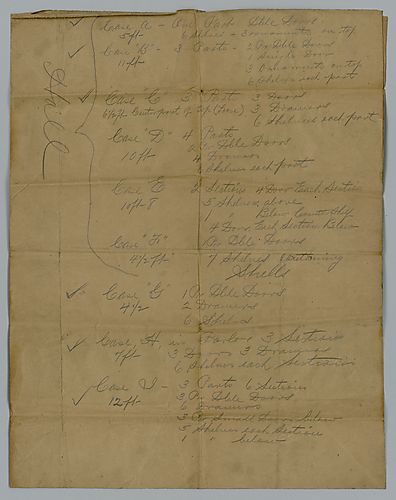 Case A - One Part Dble Doors
5 ft 6 Shelves - 3 ornaments on top
Case "B" - 3 Parts - 3 Pr Dble Doors
11 ft 1 Single Door
3 Ornaments on top
6 Shelves each part
Hall
Case "C" 3 Part 3 Doors
Center part of 3 Drawers
6 Shelves each part
Case "D" 4 Parts
10 ft Pr Dble Doors
4 Drawers
6 Shelves each part
Case E 2 Sections 4 Door Each Section
10 ft 8 5 Shelves above
1 " Below
4 Door Each Section Below
Case "F" Pr Dble Doors
4 1/2 ft 7 Shelves
Shells
Case "G" 1 Pr Dble Doors
4 1/2 2 Drawers
6 Shelves
Case, H, in Parlor 3 Sections
7 ft 3 Doors 3 Drawers
6 Shelves each Section
Case I - 3 Parts 6 Sections
12 ft 3 Pr Dble Doors
6 Drawers
3 Pr Small Doors below
5 Shelves each Section
1 " below